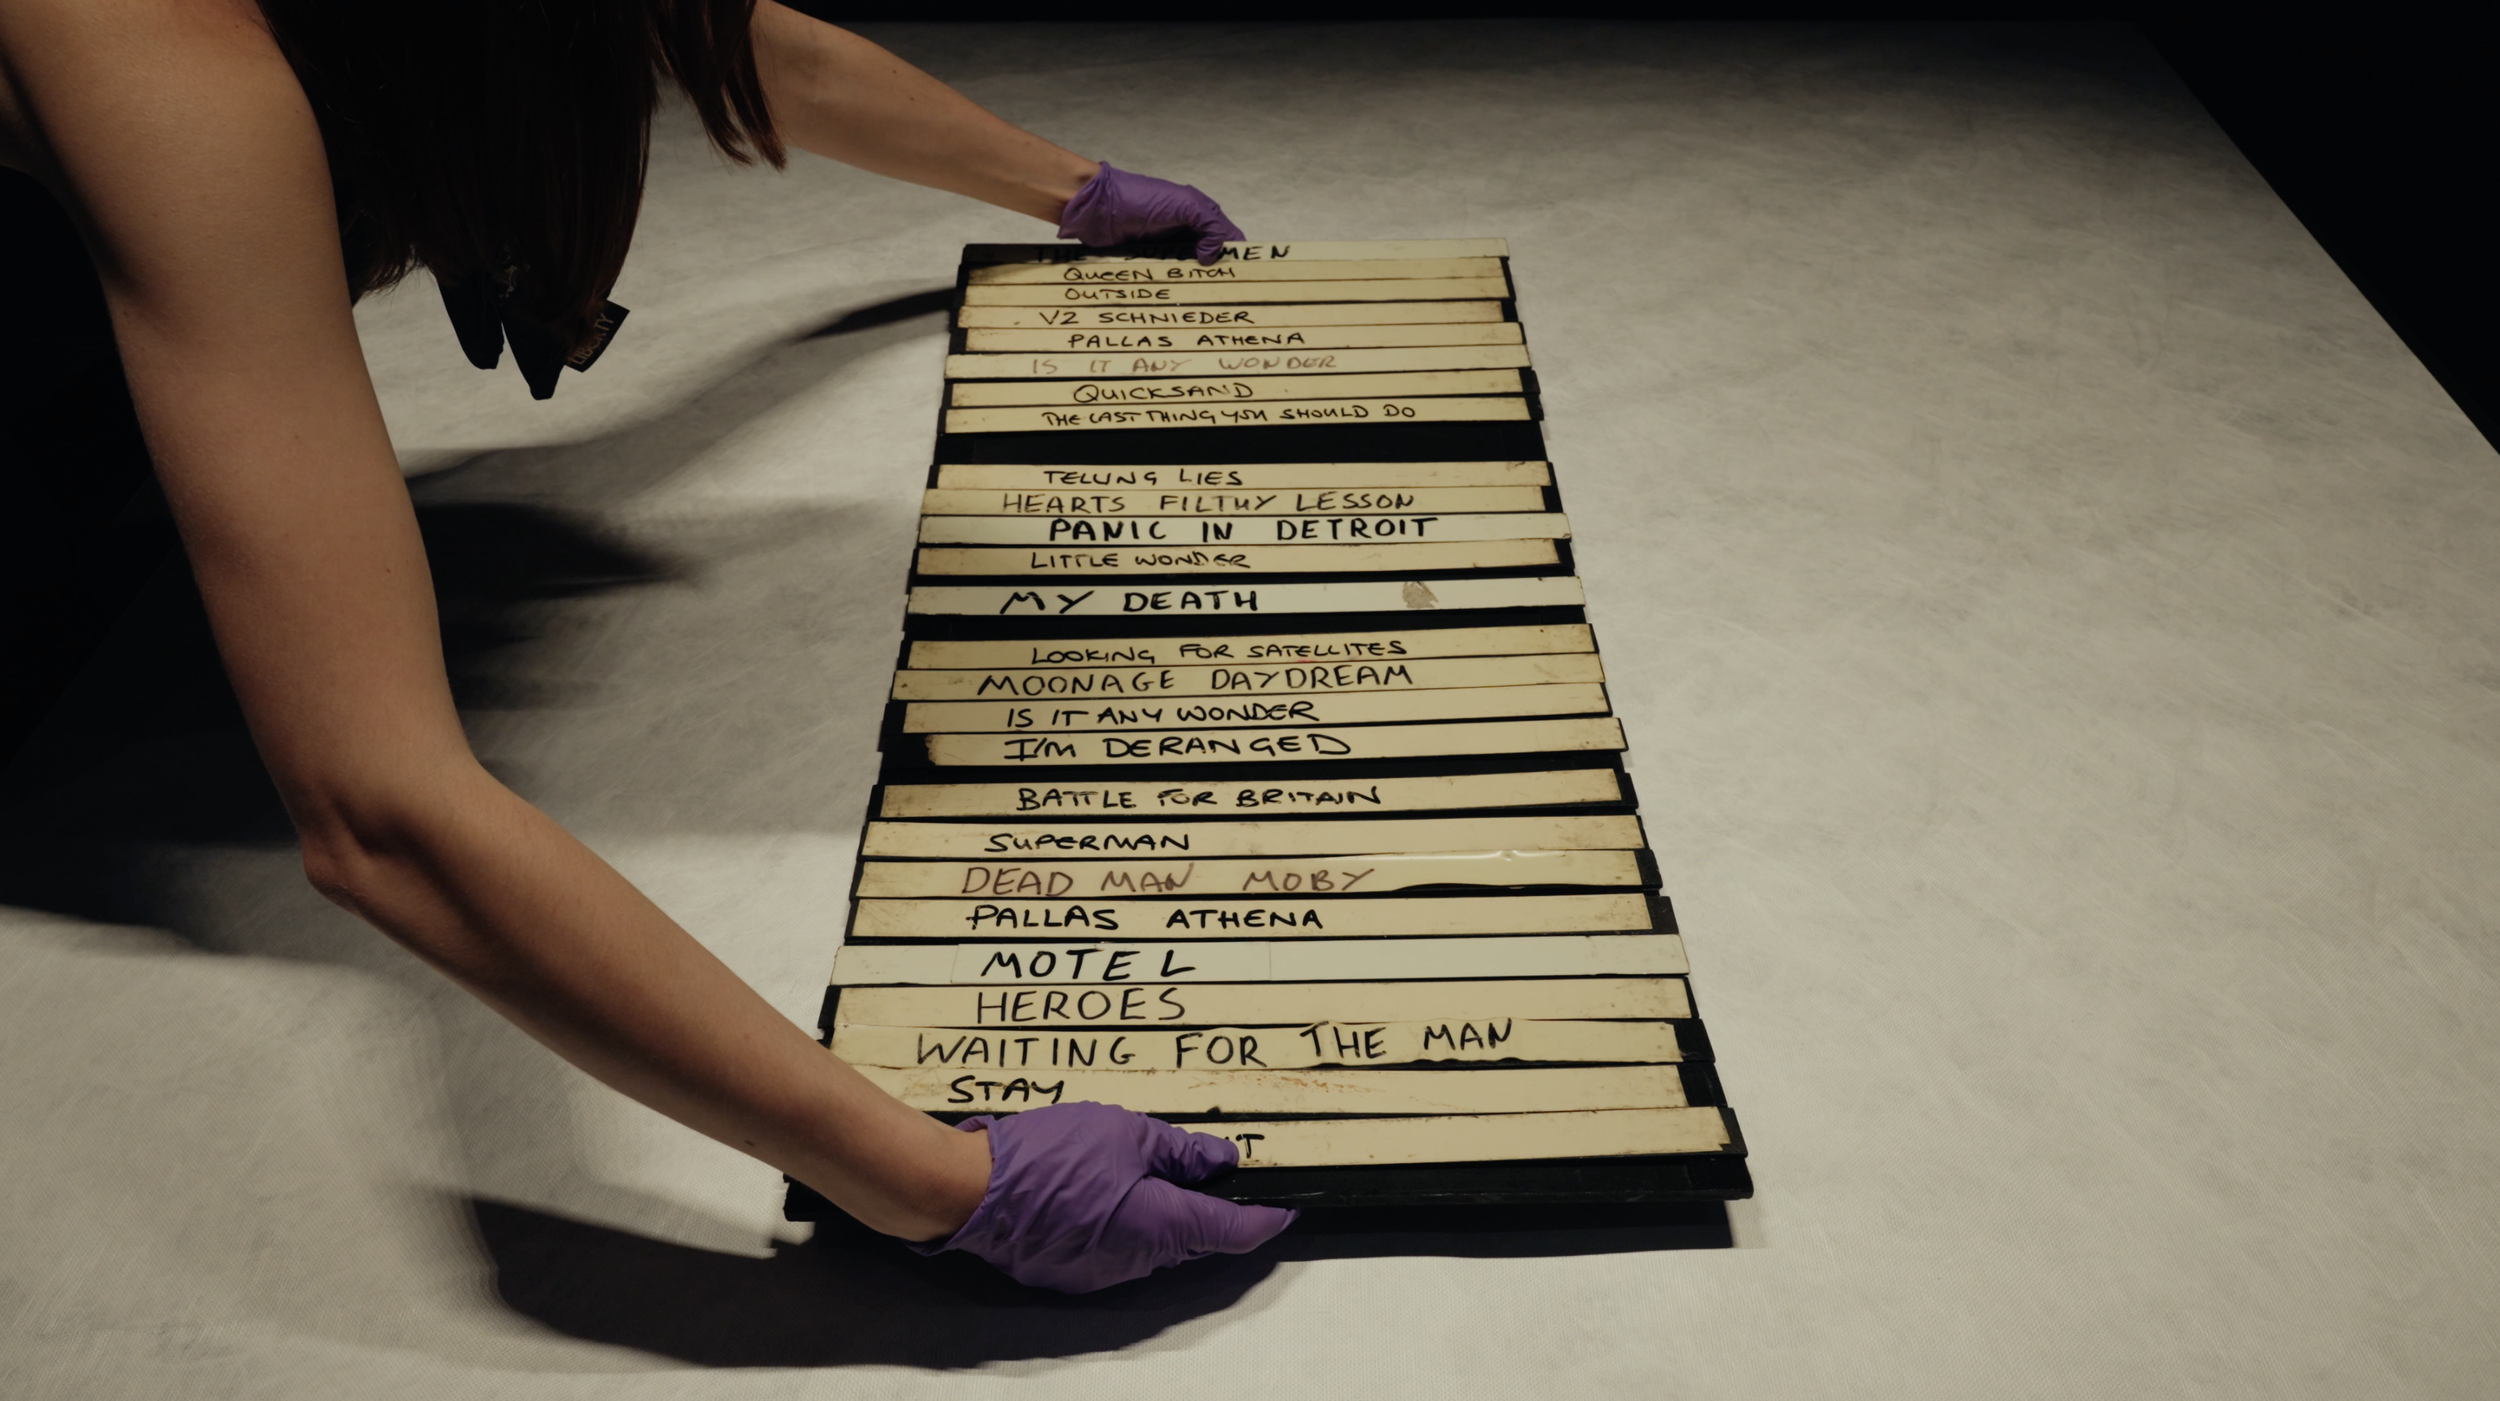 LIBERTY
THE MEN
QUEEN BITCH
OUTSIDE
V2 SCHNIEDER
PALLAS ATHENA
IS IT ANY WONDER
QUICKSAND
THE LAST THING YOU SHOULD DO
TELLING LIES
HEARTS FILTHY LESSON
PANIC IN DETROIT
LITTLE WONDER
MY DEATH
LOOKING FOR SATELLITES
MOONAGE DAYDREAM
IS IT ANY WONDER
I'M DERANGED
BATTLE FOR BRITAIN
SUPERMAN
DEAD MAN MOBY
PALLAS ATHENA
MOTEL
HEROES
WAITING FOR THE MAN
STAY